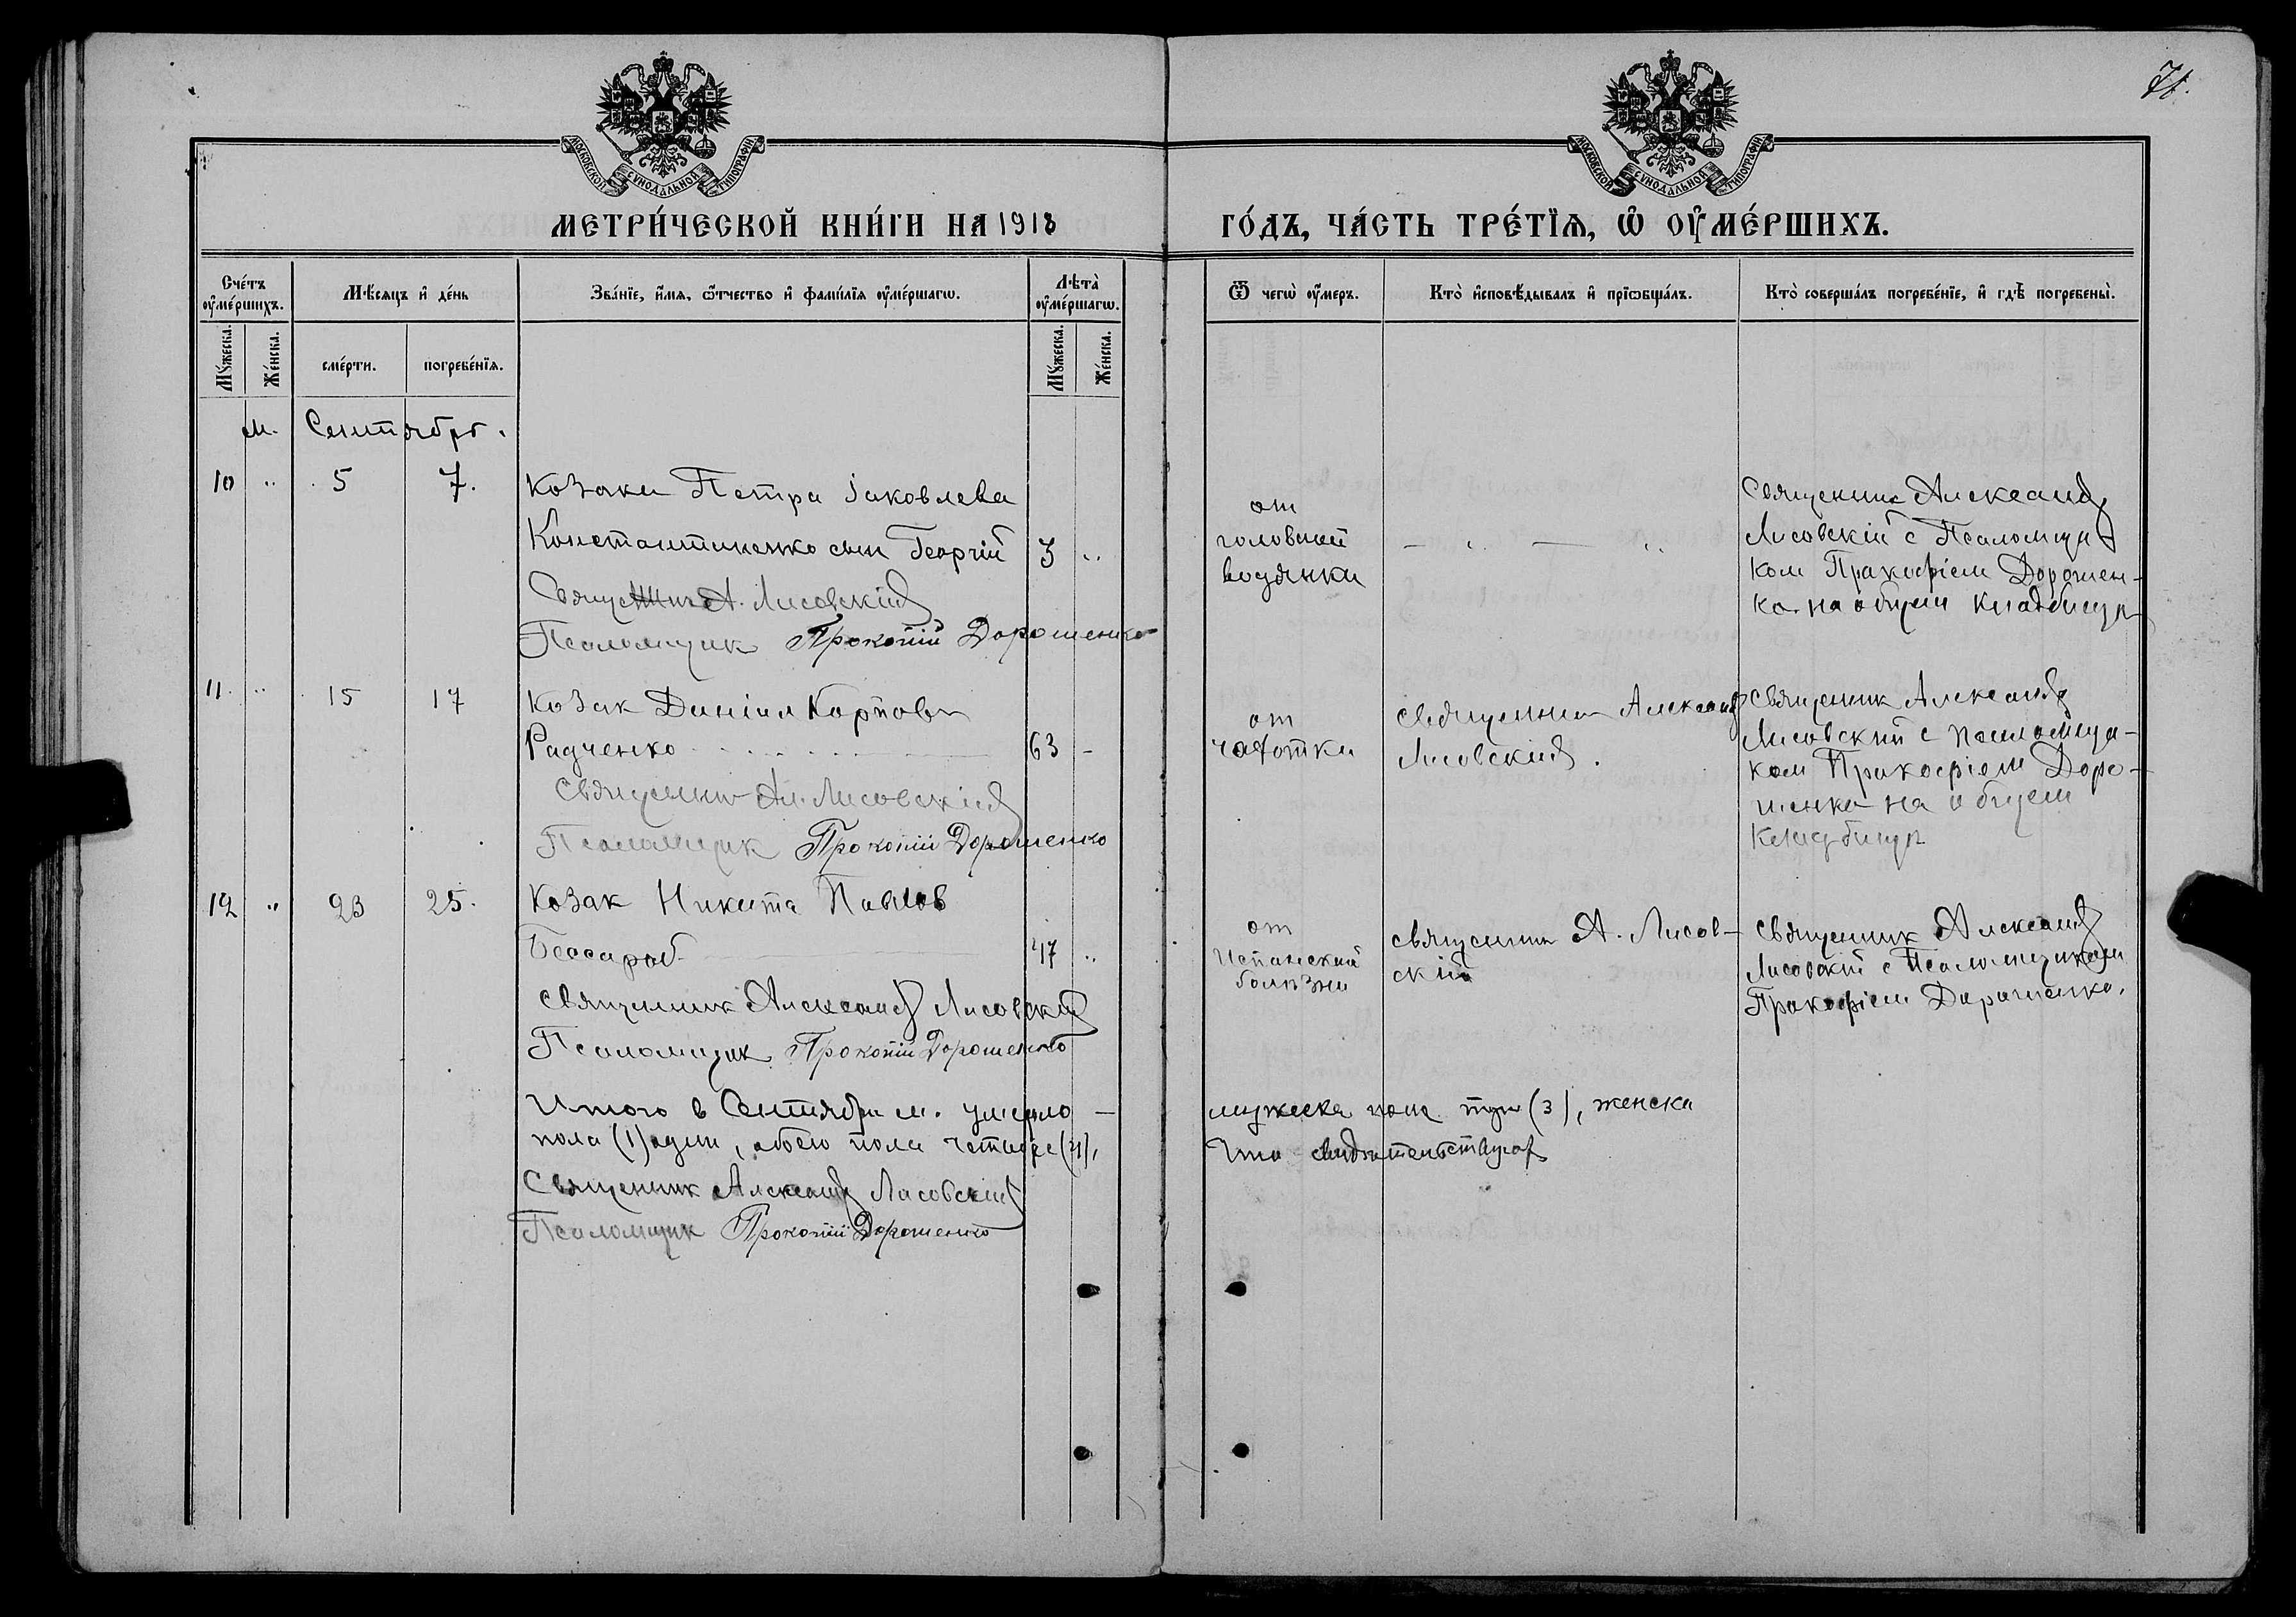 71.
МОСКОВСКОЙ СУНОДАЛЬНОЙ ТИПОГРАФІИ
МОСКОВСКОЙ СУНОДАЛЬНОЙ ТИПОГРАФІИ
МЕТРИ́ЧЕСКОЙ КНИ́ГИ НА 1918 ГО́ДЪ, ЧА́СТЬ ТРЕ́ТЇѦ, Ѽ ОУ҆МЕ́РШИХЪ.
Сче́тъ оу҆ме́ршихъ.
Мѣ́сѧцъ и҆ де́нь
Зва́нїе, и҆́мѧ, ѻ҆́тчество и҆ фами́лїѧ оу҆ме́ршагѡ.
Лѣта̀ оу҆ме́ршагѡ.
Ѿ чегѡ̀ оу҆́меръ.
Кто̀ и҆сповѣ́дывалъ и҆ прїѡбща́лъ.
Кто̀ соверша́лъ погребе́нїе, и҆ гдѣ̀ погребены̀.
Мꙋ́жеска.
Же́нска.
сме́рти.
погребе́нїѧ.
Мꙋ́жеска.
Же́нска.
м. Сентябрь.
10 " 5 7.
Козака Петра Іаковлева
Константиненко сын Георгій 3 "
Священник А. Лисовскій
Псаломщик Прокопій Дорошенко
от
головной
водянки
— " — "
Священник Александр
Лисовскій с Псаломщи
ком Прокофіем Дорошен-
ко на общем кладбищѣ
11. " 15 17
Козак Даніил Карпов
Радченко 63 -
Священник Ал. Лисовскій
Псаломщик Прокопій Дорошенко
от
чахотки
священник Александр
Лисовскій.
Священник Александр
Лисовский с псаломщи-
ком Прокофіем Доро-
шенко на общем
кладбищѣ
12 " 23 25.
Козак Никита Павлов
Бессараб 47 "
священник Александр Лисовскій
Псаломщик Прокопій Дорошенко
от
Испанской
болѣзни
священник А. Лисов-
скій
Священник Александр
Лисовскій с Псаломщиком
Прокофіем Дорошенко.
Итого в Сентябрѣ м. умерло — мужеска пола три (3), женска
пола (1) один, обоего пола четыре (4), что свидѣтельствуют
Священник Александр Лисовскій
Псаломщик Прокопій Дорошенко